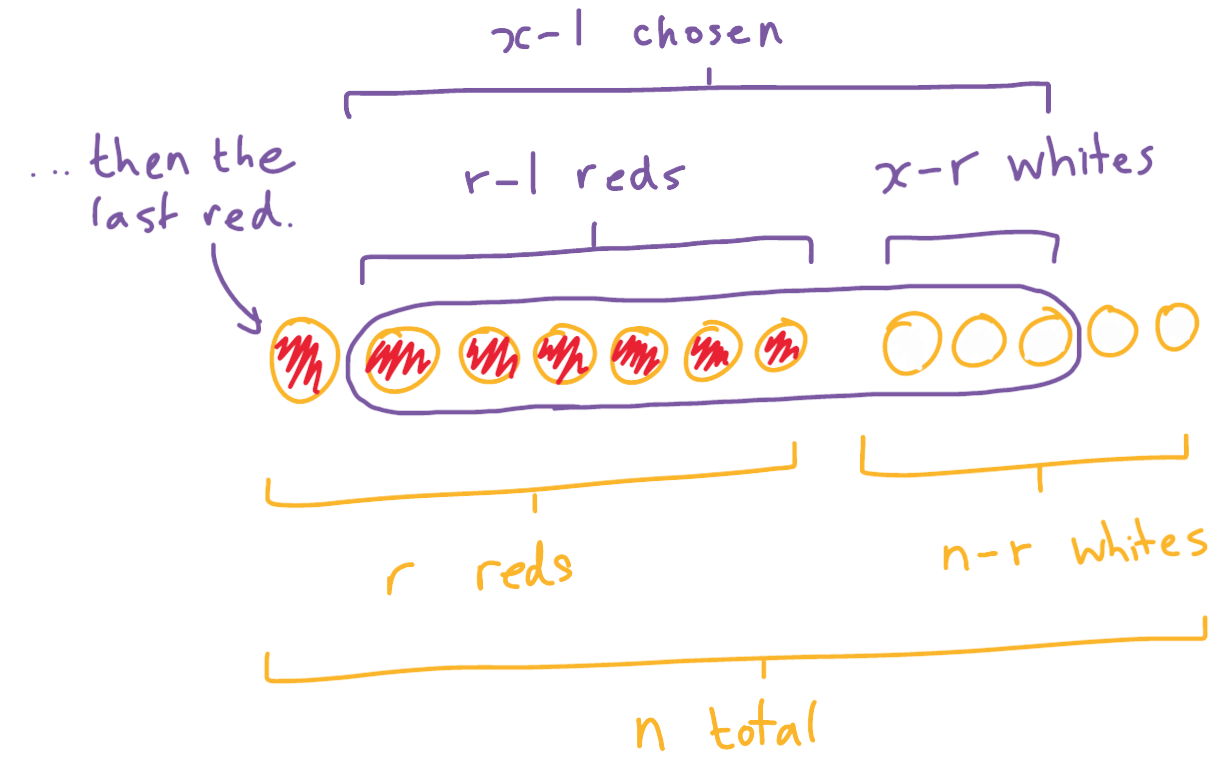 x-1 chosen
... then the
last red.
r-1 reds
x-r whites
r reds
n-r whites
n total